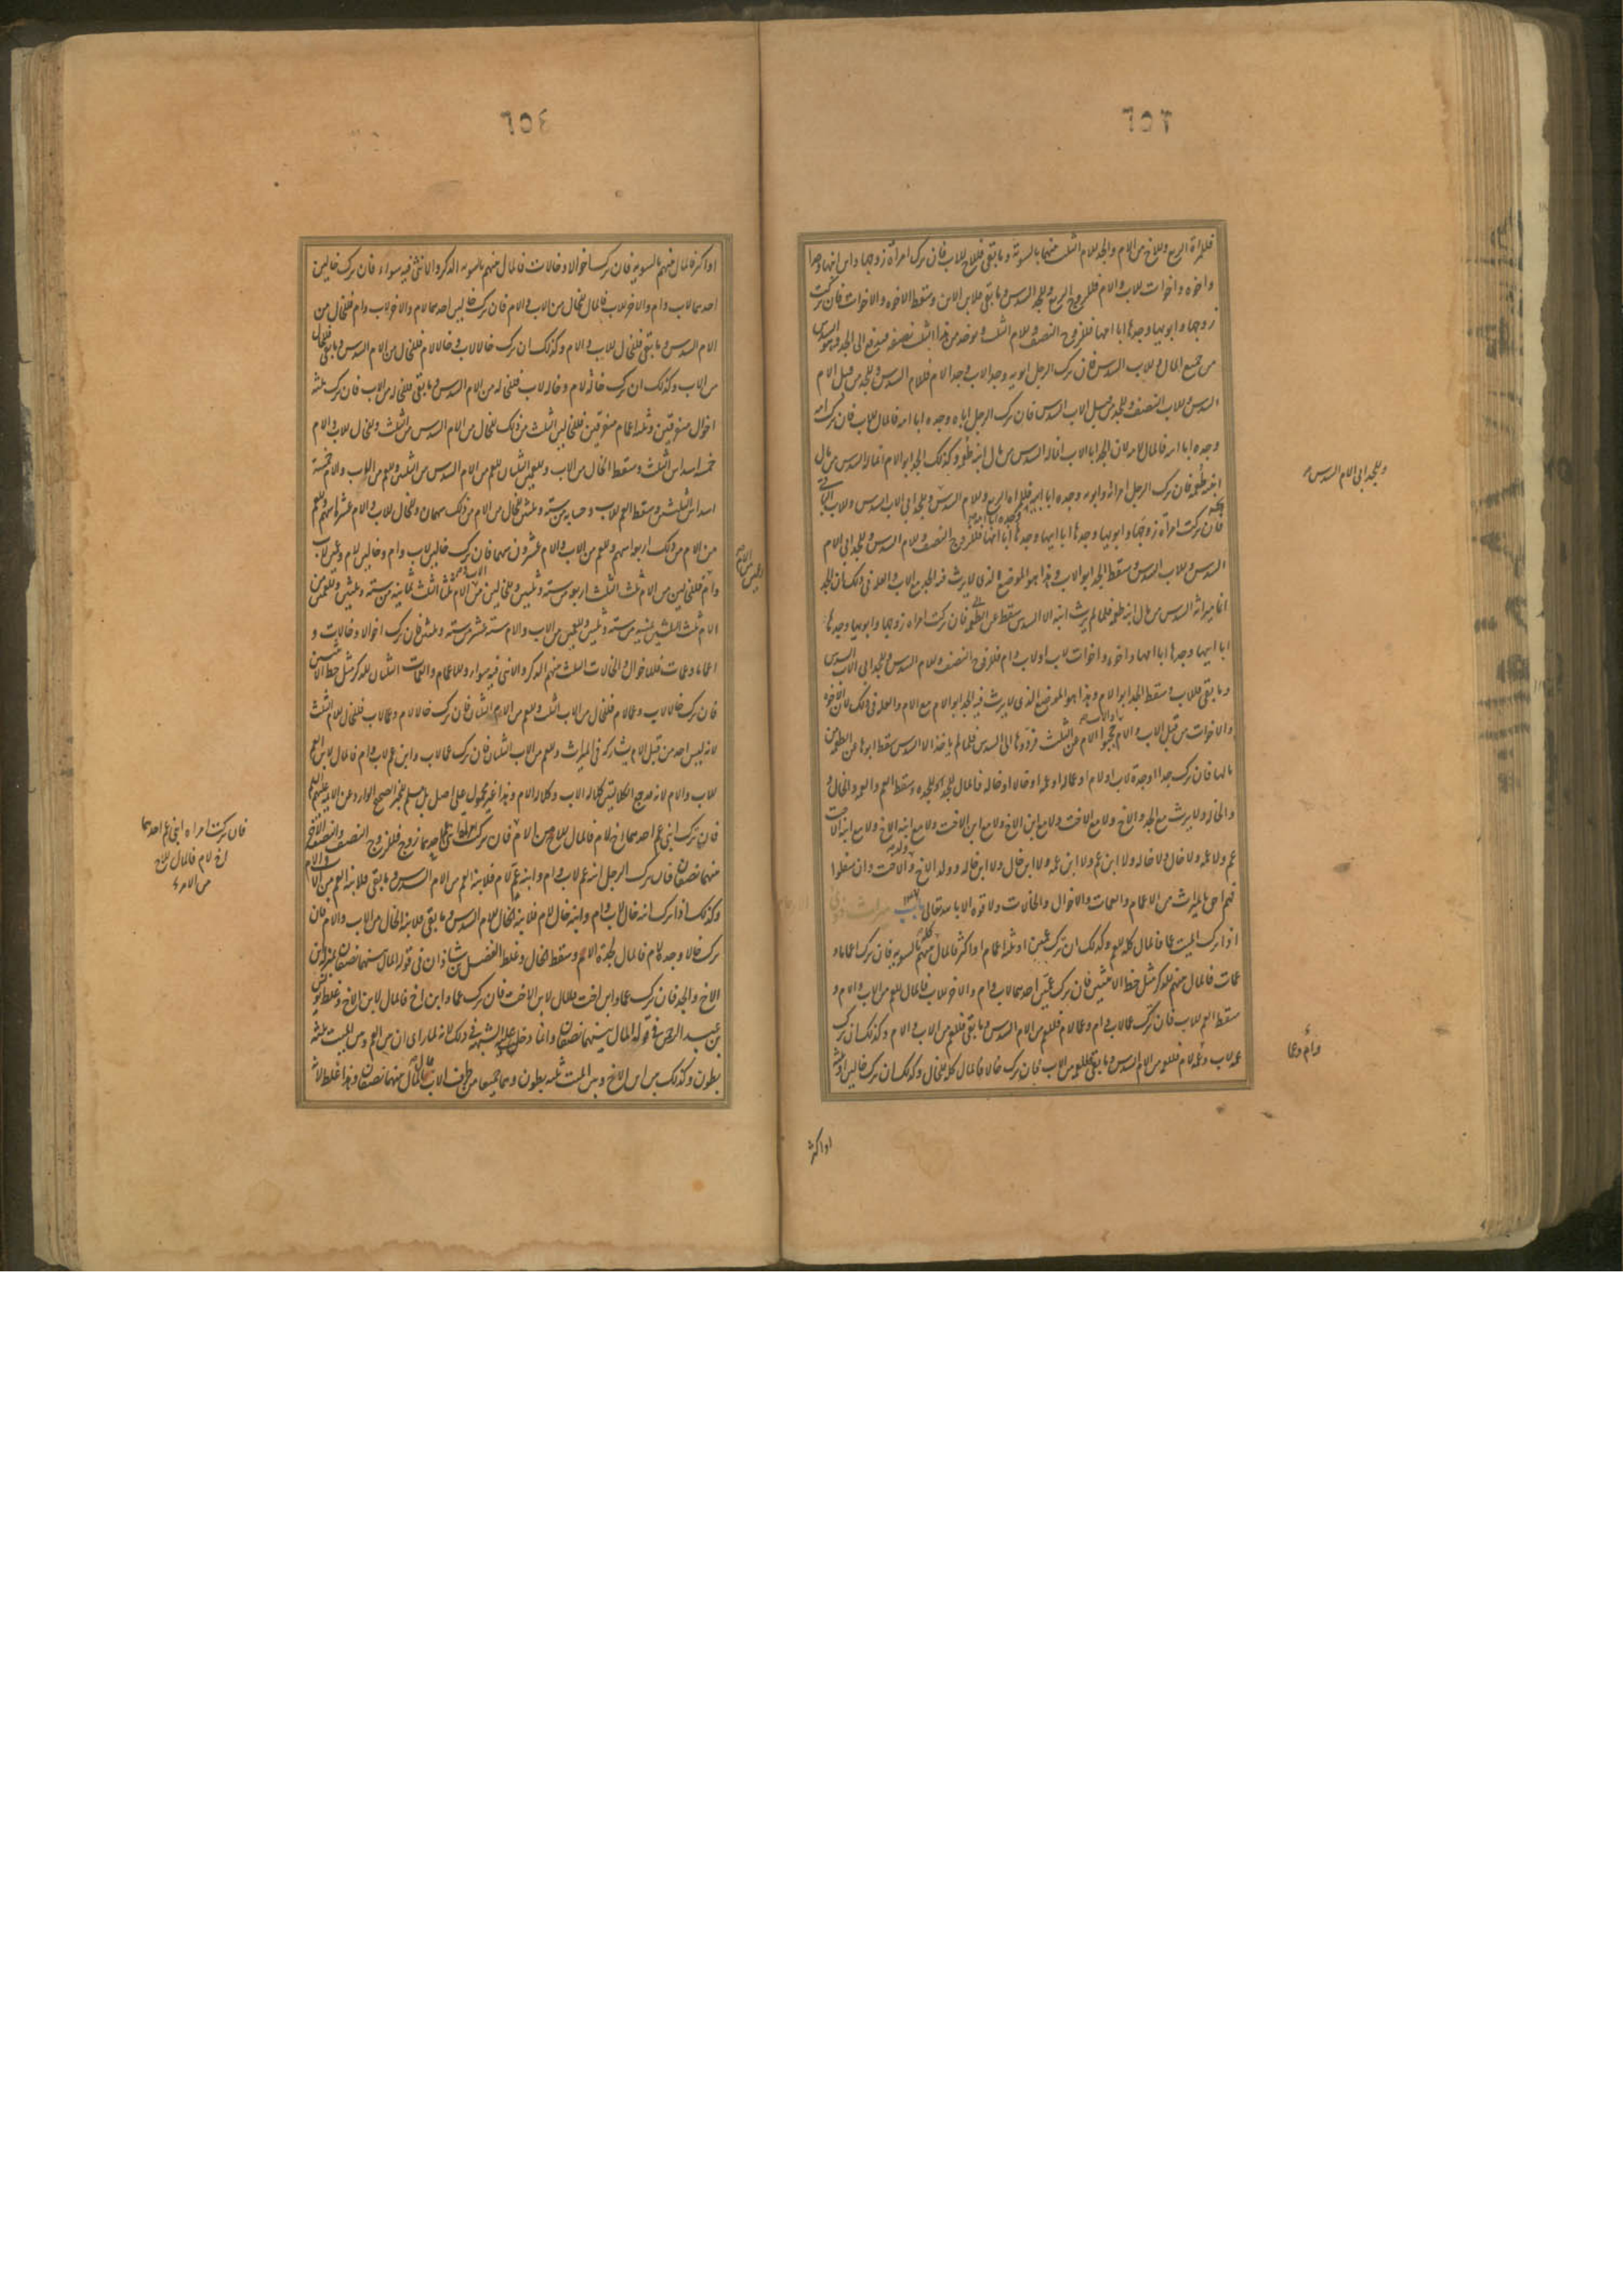 ٦٥٣
فللمراة الربع وللاخ من الام والجد للام الثلث بينهما بالسوية وما بقى فللاخ للاب فان تركت امراة زوجها وابن ابنها وجدا
واخوه واخوات لاب وام فللزوج الربع وللجد السدس وما بقى فلابن الابن وسقط الاخوه والاخوات فان تركت
زوجها وابويها وجدها ابا امها فللزوج النصف وللام الثلث يوخذ من هذا الثلث نصفه فيدفع الى الجد وهو السدس
من جميع المال وللاب السدس فان ترك الرجل ابويه وجد الاب وجد الام فللام السدس وللجد من قبل الام
السدس وللاب النصف وللجد من قبل الاب السدس فان ترك الرجل اباه وجده ابا امه فالمال للاب فان ترك امه
وجده ابا امه فالمال للام لان الجد ابا الاب انما له السدس من مال ابنه طعمة وكذلك الجد ابو الام انما له السدس من مال
ابنته طعمة فان ترك الرجل امراته وابويه وجده ابا ابيه فللمراة الربع وللام السدس وللجد ابى الاب السدس وللاب الباقى
فان تركت امراة زوجها وابويها وجدها ابا ابيها وجدها ابا امها فللزوج النصف وللام السدس وللجد ابى الام
السدس وللاب السدس وسقط الجد ابو الاب وهذا هو الموضع الذى لا يرث فيه الجد مع الاب والعلة فى ذلك ان الجد
انما ميراثه السدس من مال ابنه طعمة فلما لم يرث ابنه الا السدس سقط عن الطعمة فان تركت امراه زوجها وابويها وجدها
ابا ابيها وجدها ابا امها واخوه واخوات لاب او لاب وام فللزوج النصف وللام السدس وللجد ابى الاب السدس
وما بقى فللاب وسقط الجد ابو الام وهذا هو الموضع الذى لا يرث فيه الجد ابو الام مع الام والعلة فى ذلك لان الاخوه
والاخوات من قبل الاب والام حجبوا الام عن الثلث فردوها الى السدس فلما لم ياخذ الا السدس سقط ابوها من الطعمة من
مالها فان ترك جدا او جدة لاب او لام او عما او عمه او خالا او خاله فالمال للجد او للجده وسقط العم والعمه والخال و
والخاله ولا يرث مع الجد والاخ ولا مع الاخت ولا مع ابن الاخ ولا مع ابن الاخت ولا مع ابنه الاخ ولا مع ابنه الاخت
عم ولا عمه ولا خال ولا خاله ولا ابن عم ولا ابن عمه ولا ابن خال ولا ابن خاله وولد الاخ والاخت وان سفلوا
فهم احق بالميراث من الاعمام والعمات والاخوال والخالات ولا قوة الا بالله تعالى باب ميراث ذوى
اذا ترك الميت عما فالمال كله للعم وكذلك ان ترك عمين او ثلثه اعمام او اكثر فالمال بينهم بالسويه فان ترك اعماما و
عمات فالمال بينهم للذكر مثل حظ الانثيين فان ترك عمين احدهما لاب وام والاخر للاب فالمال للعم من الاب والام و
سقط العم للاب فان ترك عما لاب وام وعما لام فللعم من الام السدس وما بقى فللعم من الاب والام وكذلك ان ترك
عمه لاب وعمه لام فللعمه من الام السدس وما بقى فللعمه من الاب فان ترك خالا فالمال كله للخال وكذلك ان ترك خالين او ثلثه
وللجد ابى الام السدس
وام وعما
او اكثر
٦٥٤
او اكثر فالمال بينهم بالسويه فان ترك اخوالا وخالات فالمال بينهم بالسويه الذكر والانثى فيه سواء فان ترك خالين
احدهما لاب وام والاخر لاب فالمال للخال من الاب والام فان ترك خالين احدهما لام والاخر لاب وام فللخال من
الام السدس وما بقى فللخال للاب والام وكذلك ان ترك خالا لاب وخالا لام فللخال من الام السدس وما بقى فللخال
من الاب وكذلك ان ترك خالة لام وخاله لاب فللخاله من الام السدس وما بقى فللخاله من الاب فان ترك ثلثه
اخوال متفرقين وثلثه اعمام متفرقين فللخالين الثلث من ذلك للخال من الام السدس من الثلث وللخال للاب والام
خمسه اسداس الثلث وسقط الخال من الاب وللعمين الثلثان للعم من الام السدس من الثلثين وللعم من الاب والام خمسه
اسداس الثلثين وسقط العم للاب وحسابه من سته وثلثين للخال من الام من ذلك سهمان وللخال للاب والام عشرة اسهم وللعم
من الام من ذلك اربعه اسهم وللعم من الاب والام عشرون سهما فان ترك خالين لاب وام وخالين لام وعمين لاب
وام فللخالين من الام ثلث الثلث اربعه من سته وثلثين وللخالين من الاب والام ثلثا الثلث ثمانيه من سته وثلثين وللعمين من
الام ثلث الثلثين ثمانيه من سته وثلثين وللعمين من الاب والام سته عشر من سته وثلثين فان ترك اخوالا وخالات و
اعماما وعمات فللاخوال والخالات الثلث بينهم الذكر والانثى فيه سواء وللاعمام والعمات الثلثان للذكر مثل حظ الانثيين
فان ترك خالا لاب وعما لام فللخال من الاب الثلث وللعم من الام الثلثان فان ترك خالا لام وعما لاب فللخال للام الثلث
لانه ليس احد من قبل الام يشاركه فى الميراث وللعم من الاب الثلثان فان ترك عما لاب وابن عم لاب وام فالمال لابن العم
للاب والام لانه قد جمع الكلالتين كلاله الاب وكلاله الام وهذا غير محمول على اصل بل مسلم للخبر الصحيح الوارد عن الائمه عليهم السلام
فان ترك ابنى عم احدهما اخ لام فالمال للاخ من الام فان تركت امراة ابنى عم احدهما زوج فللزوج النصف والنصف الاخر
بينهما نصفان فان ترك الرجل ابنه عم لاب وام وابنه عم لام فلابنه العم من الام السدس وما بقى فلابنه العم من الاب والام
وكذلك اذا ترك ابنه خال لاب وام وابنه خال لام فلابنه الخال للام السدس وما بقى فلابنه الخال من الاب والام فان
ترك خالا وجدة لام فالمال لجدة الام وسقط الخال وغلط الفضل بن شاذان فى قوله المال بينهما نصفان بمنزله ابن
الاخ والجد فان ترك عما وابن اخت فالمال لابن الاخت فان ترك عما وابن اخ فالمال لابن الاخ وغلط يونس
بن عبد الرحمن فى قوله المال بينهما نصفان وانما دخلت عليه الشبهه فى ذلك لانه لما راى ان بين العم وبين الميت ثلثه
بطون وكذلك بين ابن الاخ وبين الميت ثلثه بطون وهما جميعا من طريق الاب قال المال بينهما نصفان وهذا غلط لانه
فان تركت امراه ابنى عم احدهما
اخ لام فالمال للاخ
من الام